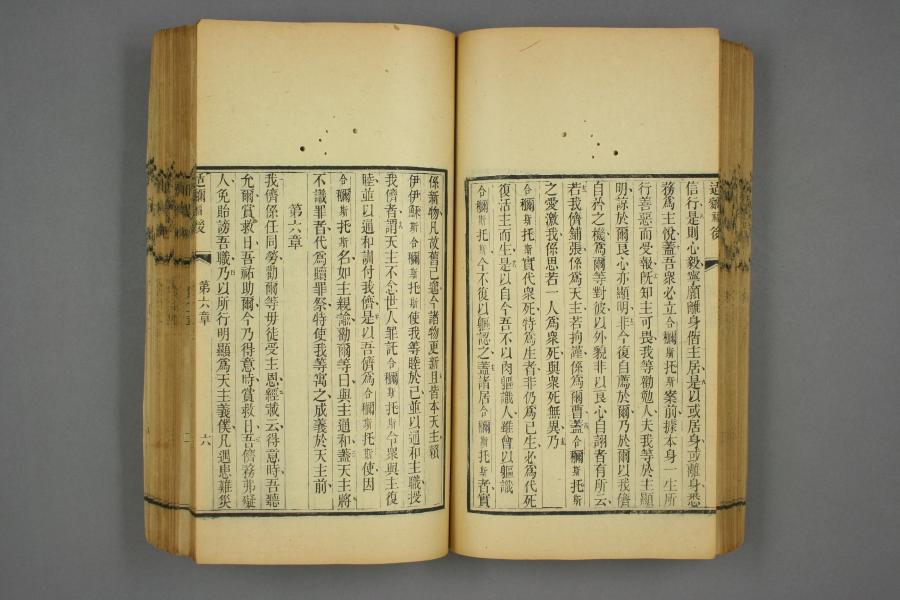 信行是則心毅寧願離身偕主居是以或居身或離身悉
務為主悅蓋吾眾必立合禰斯托斯案前據本身一生所
行善惡而受報旣知主可畏我等勸勉人夫我等於主顯
明諒於爾良心亦顯明非今復自薦於爾乃於爾以我儕
自矜之機為爾等對彼以外貌非以良心自詡者有所云
若我儕鋪張係為天主若拘謹係為爾曹蓋合禰斯托斯
之愛激我係思若一人為眾死與眾死無異乃
合禰斯托斯實代眾死特為生者非仍為己生必為代死
復活主而生是以自今吾不以肉軀識人雖曾以軀識
合禰斯托斯今不復以軀認之蓋諸居合禰斯托斯者實
係新物凡故舊已遷今諸物更新且皆本天主賴
伊伊穌斯合禰斯托斯使我等睦於己並以通和主職授
我儕者謂天主不念世人罪託合禰斯托斯令眾與主復
睦並以通和訓付我儕是以吾儕為合禰斯托斯使因
合禰斯托斯名如主親諭勸爾等曰與主通和蓋天主將
不識罪者代為贖罪祭特使我等寓之成義於天主前
第六章
我儕係任同勞勸爾等毋徒受主恩經載云得意時吾聽
允爾賞救日吾祐助爾今乃得意時賞救日吾儕務弗礙
人免貽謗吾職乃以所行明顯為天主義僕凡遇患難災
後 第六章 六